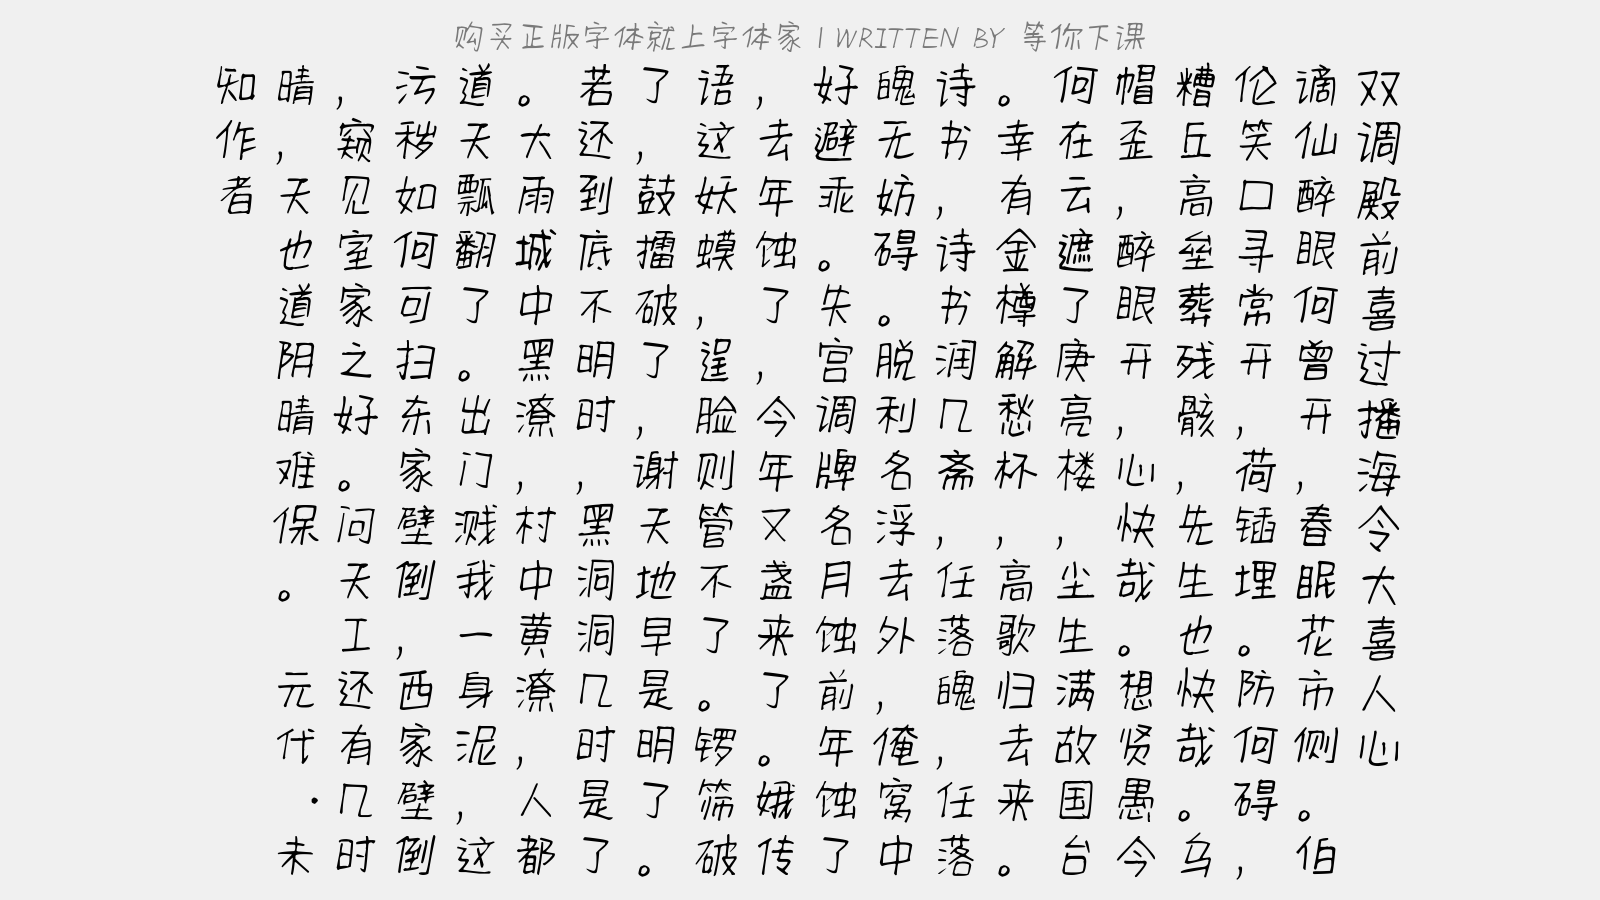 购买正版字体就上字体家 | WRITTEN BY 等你下课
双调殿前喜过播海令大喜人心
谪仙醉眼何曾开，春眠花市侧。伯
伦笑口寻常开，荷锸埋。防何碍，
糟丘高垒葬残骸，先生也快哉。乌
帽歪，醉眼开，心快哉。想贤愚今
何在云遮了庚亮楼，尘生满故国台
。幸有金樽解愁杯，高歌归去来。
诗书，诗书润几斋，任落魄，任落
魄无妨碍。脱利名浮去外，俺窝中
好避乖。失宫调牌名月蚀前年蚀了
，去年蚀了，今年又盏来了。娥传
语这妖蟆，逞脸则管不了。锣筛破
了，鼓擂破了，谢天地早是明了。
若还到底不明时，黑洞洞几时是了
。大雨城中黑潦，村中黄潦，人都
道天瓢翻了。出门溅我一身泥，这
污秽如何可扫东家壁倒，西家壁倒
，窥见室家之好。问天工还有几时
晴，天也道阴晴难保。 元代·未
知作者